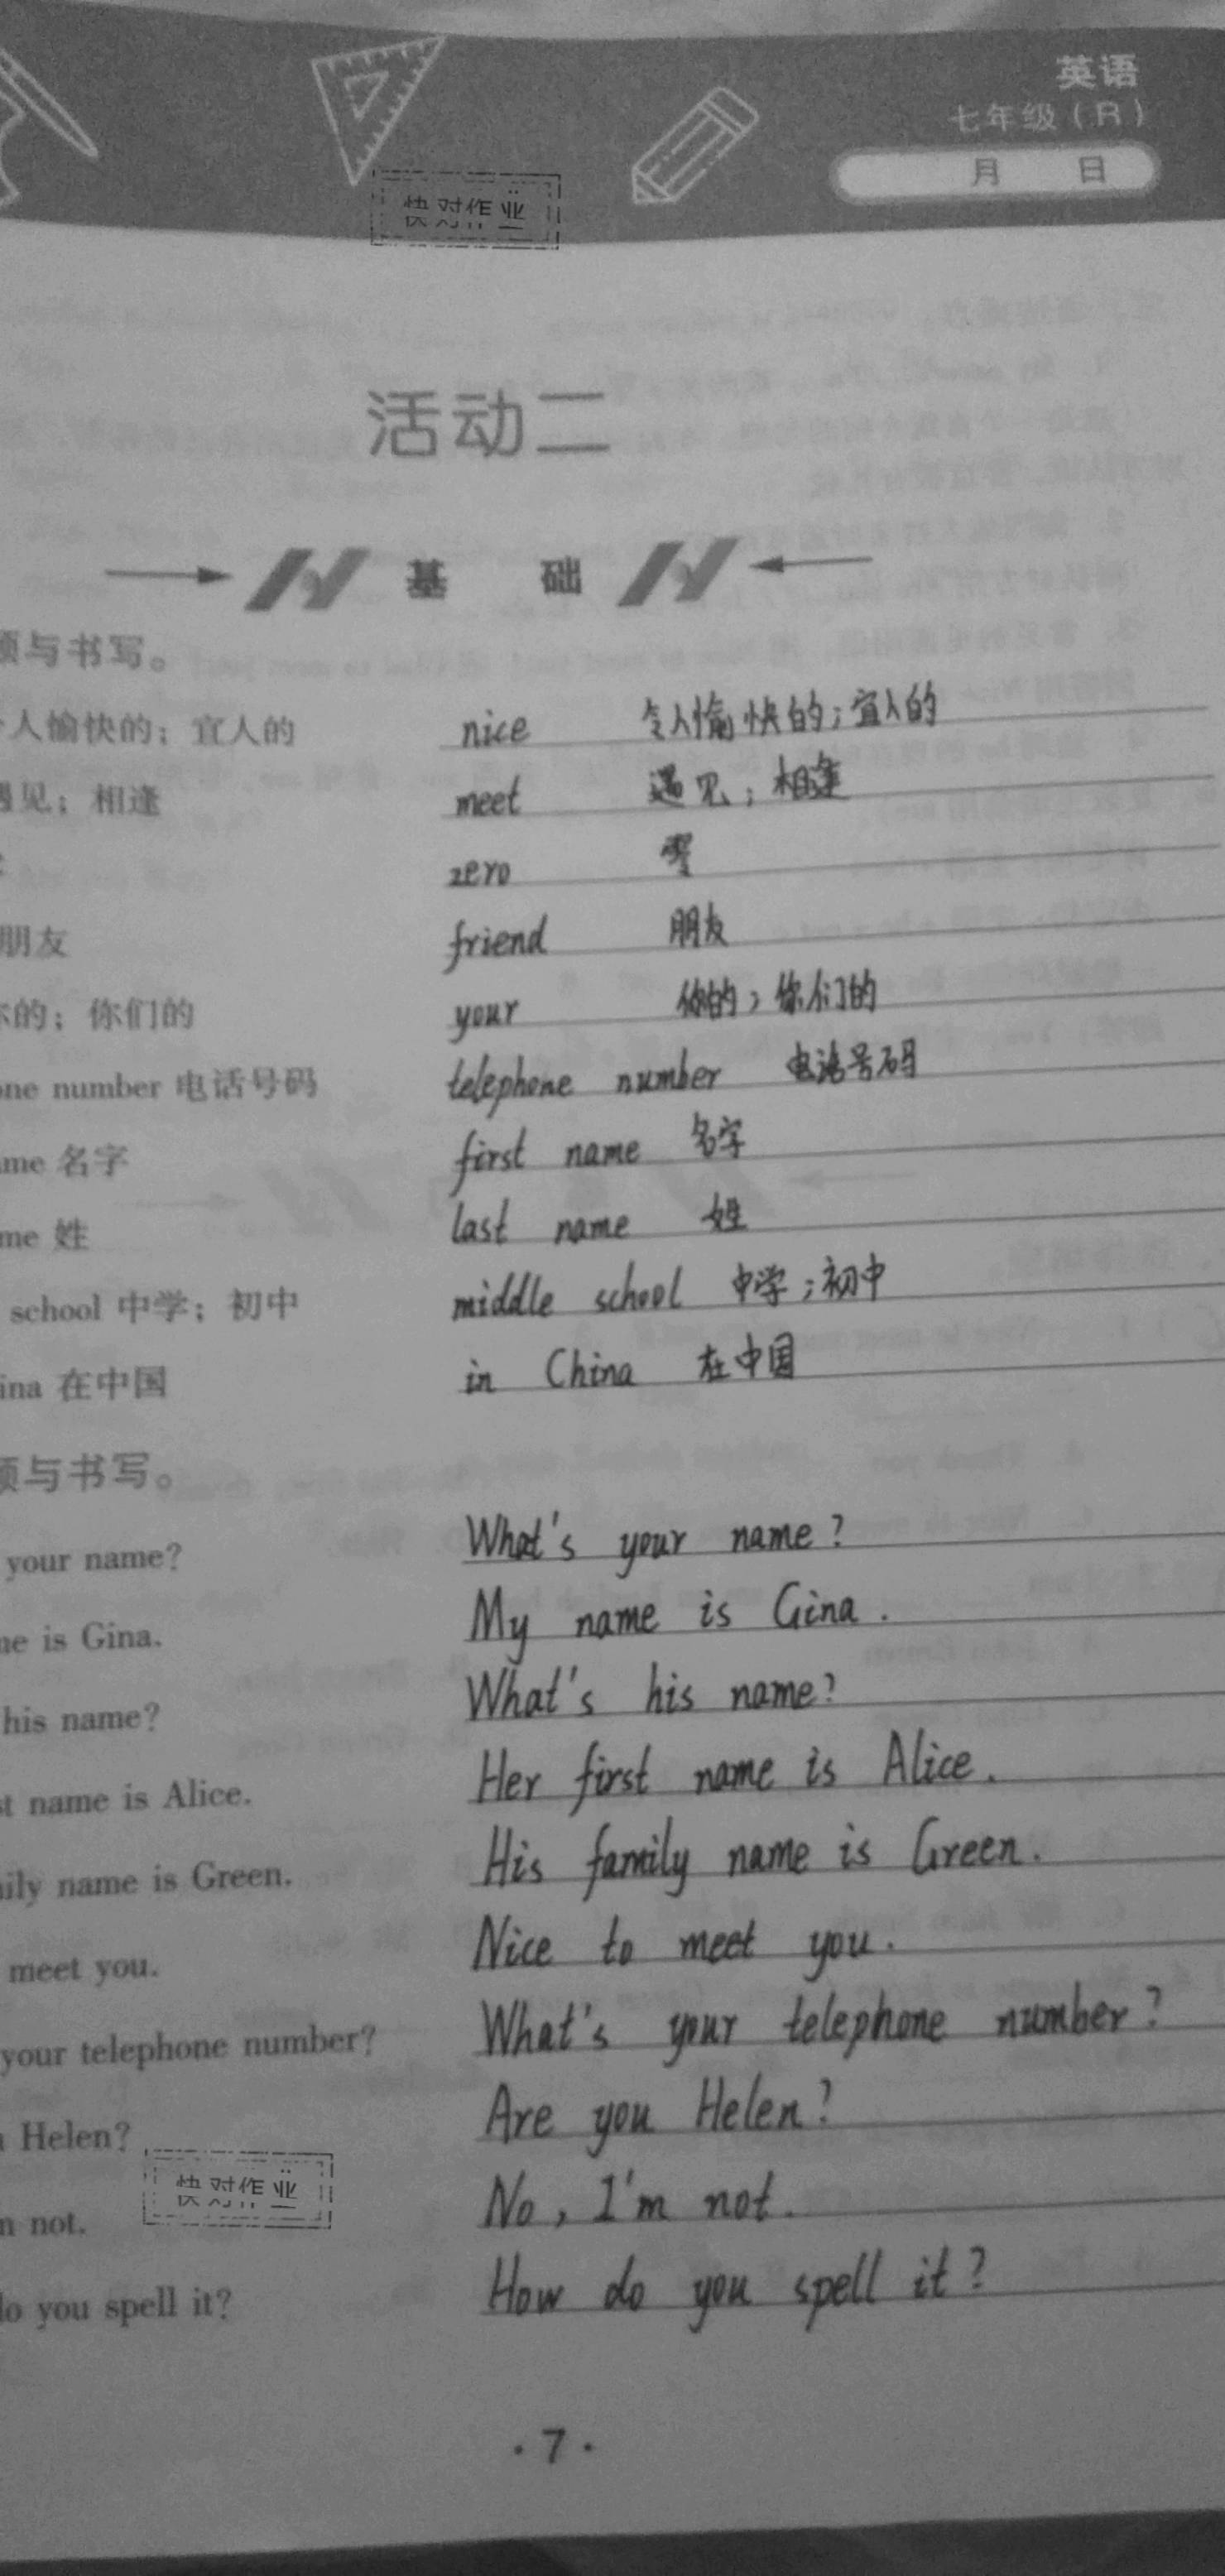 英语
七年级(R)
月 日
快对作业
活动二
基 础
与书写。
人愉快的；宜人的 nice 令人愉快的；宜人的
见；相逢 meet 遇见；相逢
zero 零
朋友 friend 朋友
的；你们的 your 你的；你们的
number 电话号码 telephone number 电话号码
名字 first name 名字
姓 last name 姓
school 中学；初中 middle school 中学；初中
在中国 in China 在中国
与书写。
your name? What's your name?
is Gina. My name is Gina.
his name? What's his name?
name is Alice. Her first name is Alice.
name is Green. His family name is Green.
meet you. Nice to meet you.
your telephone number? What's your telephone number?
Helen? Are you Helen?
快对作业
not. No, I'm not.
you spell it? How do you spell it?
·7·